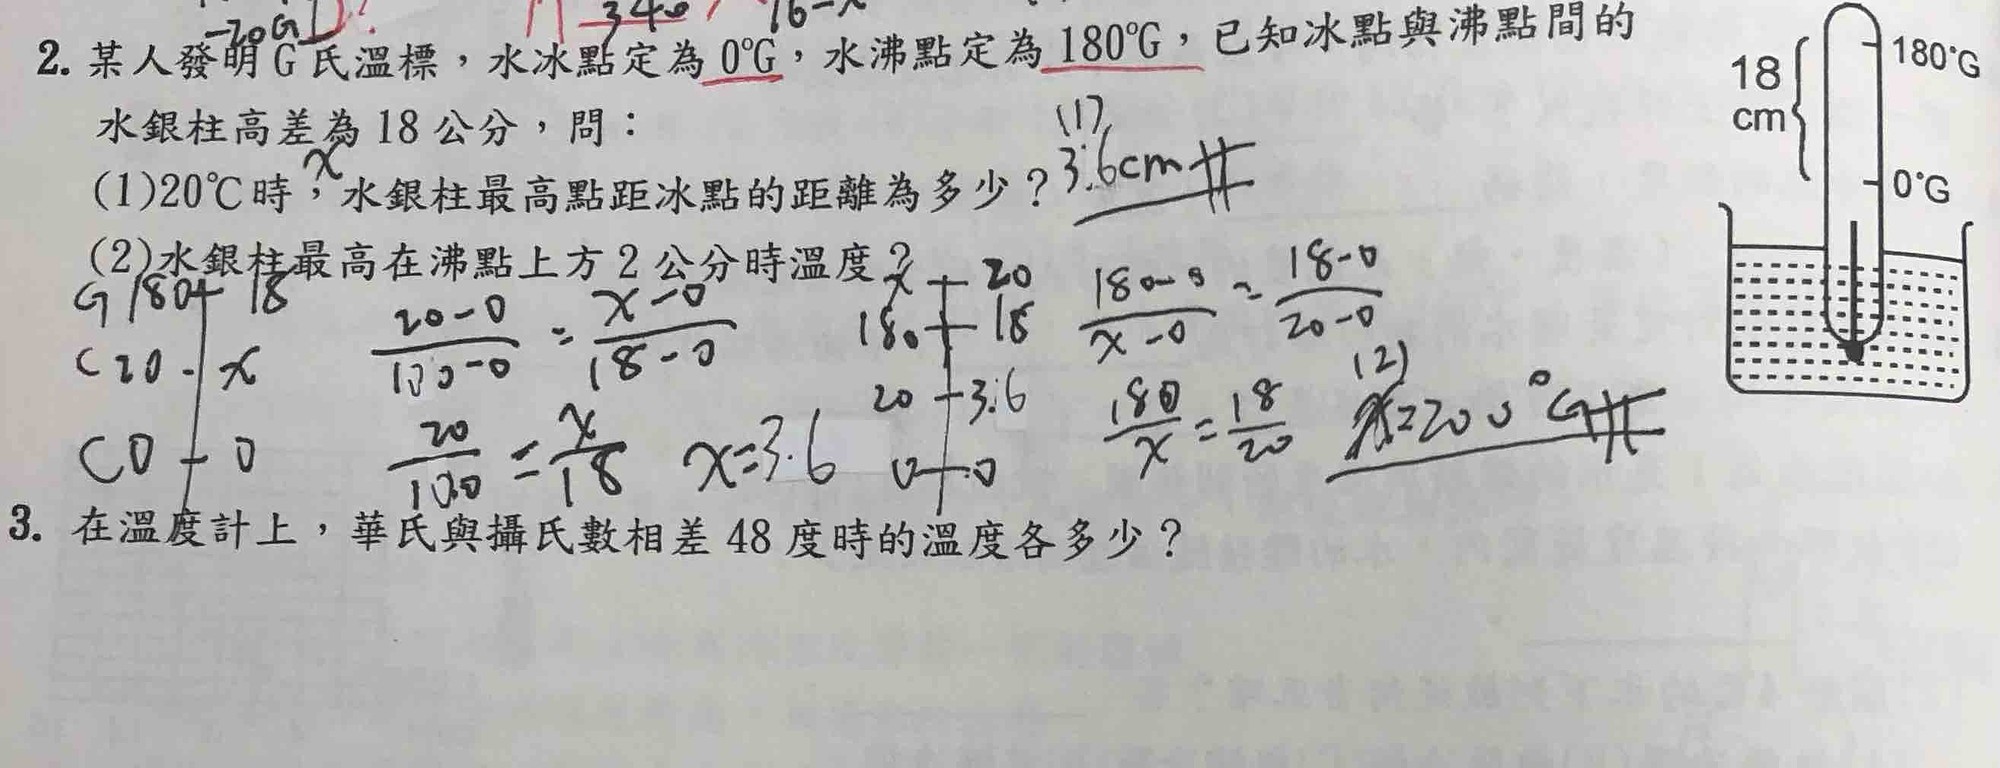 -20G
346
16-x
2. 某人發明 G 氏溫標，水冰點定為 0°G，水沸點定為 180°G，已知冰點與沸點間的
水銀柱高差為 18 公分，問：
x
(1)20℃時，水銀柱最高點距冰點的距離為多少？
(1)
3.6cm
(2)水銀柱最高在沸點上方 2 公分時溫度？
G 180 18
C 20 x
C 0 0
20-0/100-0 = x-0/18-0
20/100 = x/18 x=3.6
x 20
180 18
20 3.6
0 0
180-0/x-0 = 18-0/20-0
180/x = 18/20
(2)
x=200°G
3. 在溫度計上，華氏與攝氏數相差 48 度時的溫度各多少？
18
cm
180°G
0°G